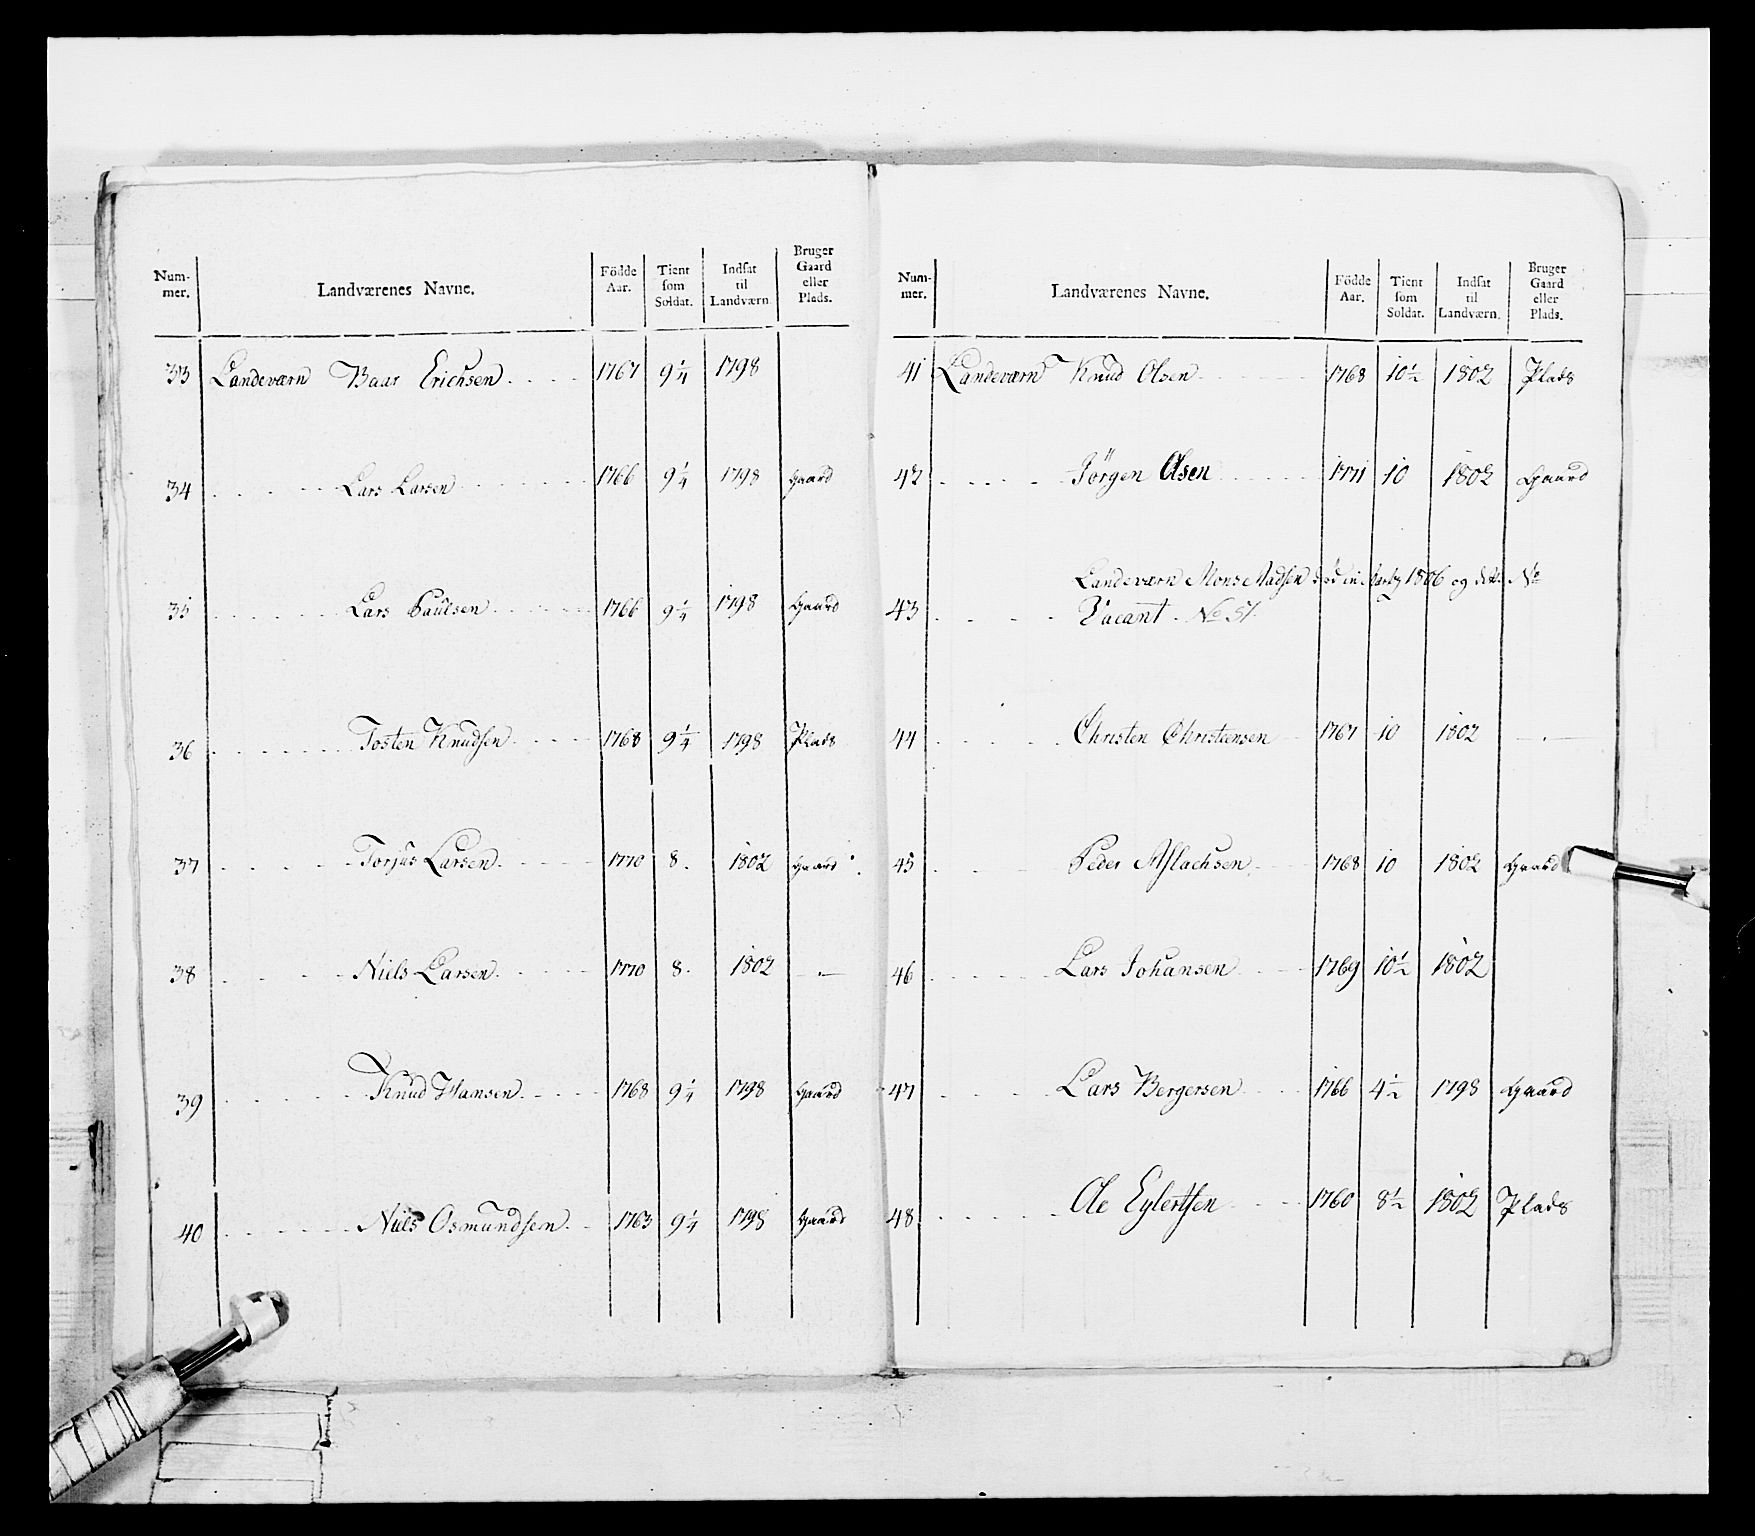 Num-mer. Landværenes Navne. Födde Aar. Tient som Soldat. Indsat til Landværn. Bruger Gaard eller Plads.
33 Landeværn Baar Erichsen 1767 9¼ 1798
34 Lars Larsen 1766 9¼ 1798 Gaard
35 Lars Paulsen 1766 9¼ 1798 Gaard
36 Tosten Knudsen 1768 9¼ 1798 Plads
37 Torjus Larsen 1770 8. 1802 Gaard
38 Niels Larsen 1770 8. 1802 —.—
39 Knud Hansen 1768 9¼ 1798 Gaard
40 Niels Osmundsen 1763 9¼ 1798 Gaard
Num-mer. Landværenes Navne. Födde Aar. Tient som Soldat. Indsat til Landværn. Bruger Gaard eller Plads.
41 Landeværn Knud Olsen 1768 10½ 1802 Plads
42 Jörgen Olsen 1771 10 1802 Gaard
Landeværn Mons Madsen död in 1806 og No
43 Vacant. No 51.
44 Christen Christensen 1767 10 1802 —.—
45 Peder Aslachsen 1768 10 1802 Gaard
46 Lars Johansen 1769 10½ 1802
47 Lars Bergersen 1766 4½ 1798 Gaard
48 Ole Eylertsen 1760 8½ 1802 Plads